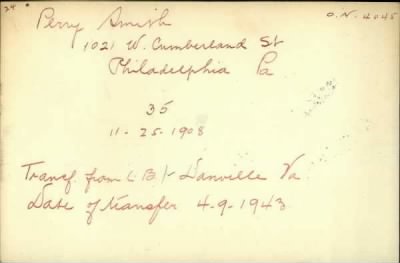 24
O.N. 4045
Perry Smith
1021 W. Cumberland St
Philadelphia Pa
35
11-25-1908
Transf. from (B)- Danville Va
Date of transfer 4-9-1943